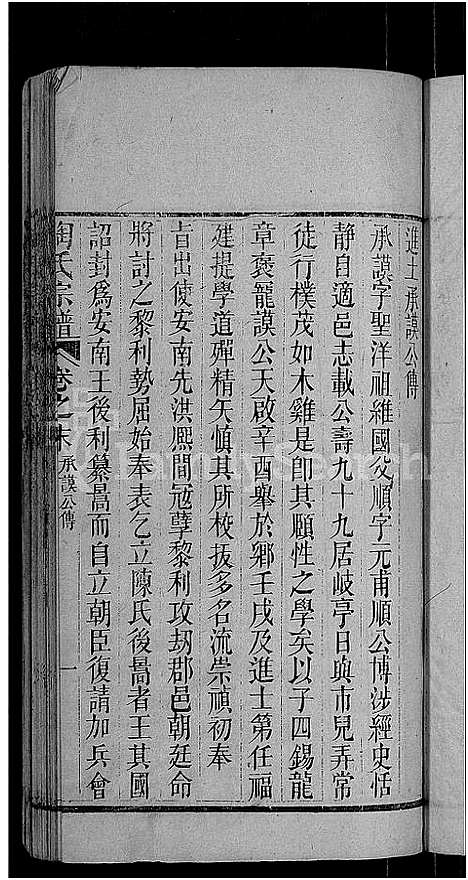 進士承謨公傳
承謨字聖洋祖維國父順字元甫順公博涉經史恬
靜自適邑志載公壽九十九居岐亭日與市兒弄常
徒行樸茂如木雞是卽其願性之學矣以子四錫龍
章褒寵謨公天啟辛酉舉於鄉壬戌及進士第任福
建提學道殫精矢愼其所校拔多名流崇禎初奉
旨出使安南先洪熙間冠孽黎利攻刼郡邑朝廷命
將討之黎利勢屈始奉表乞立陳氏後暠者王其國
詔封爲安南王後利纂暠而自立朝臣復請加兵會
陶氏宗譜 卷之末 承謨公傳 一